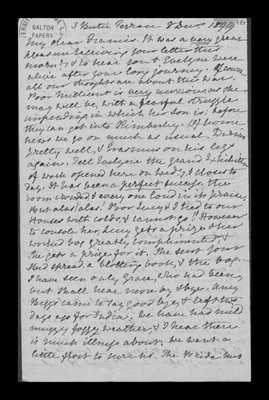 GALTON
PAPERS
5 Bertie Terrace 2 Dec 1899
My dear Francis. It was a very great
pleasure receiving your letter this
morng & to hear you & Evelyne were
alive after your long journey. Of course
all our thoughts are about this War.
Poor Millicent is very anxious as she
may well be, with a fearful struggle
impending in which her son is, before
they can get into Kimberley. At home
here we go on much as usual. Darwin
pretty well, & Erasmus on his legs
again. Tell Evelyne the grand Exhibition
of work opened here on Wedy & closes to
day. It has been a perfect success, the
room crowded & every one loud in its praise,
But alas! alas! Poor Lucy & I tied to our
Houses with colds & cannot go!! However
to console her, Lucy gets a prize & the
worked bag greatly complimented, &
she gets a prize for it. She sent your
Bed spread, a blotting book, & the bag.
I have seen only Grace, who had been,
but I shall hear more by & bye. Amy
came to say good bye, & left two
days ago for India; we have had mild
muggy foggy weather, & I hear there
is much illness about, we want a
little frost to cure us. The